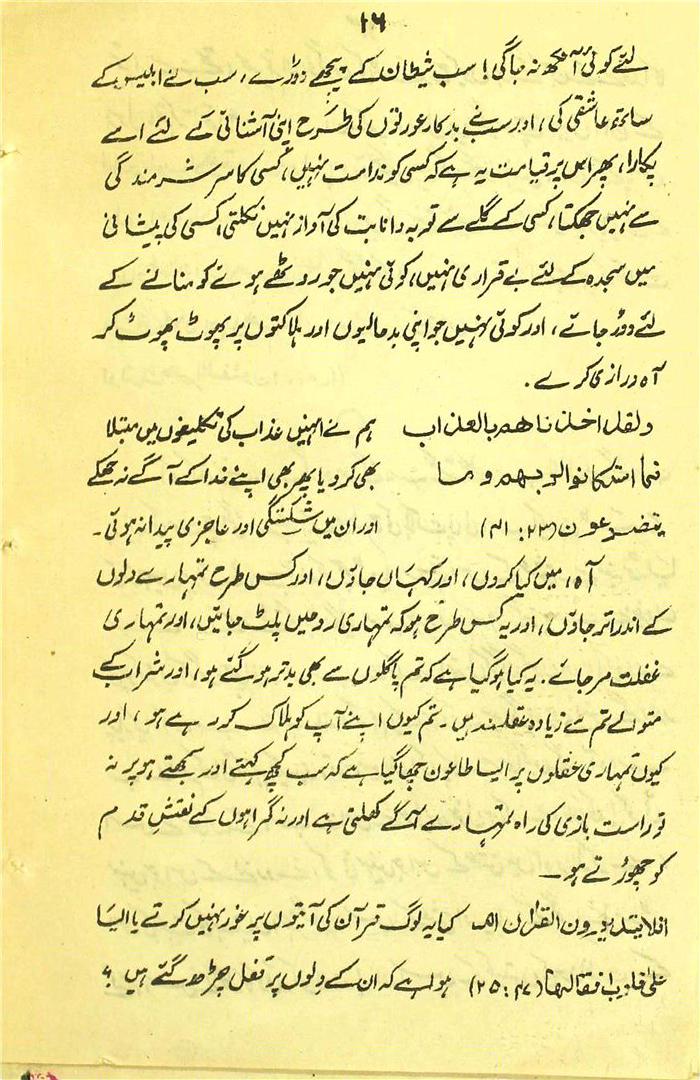 ۱۶
لئے کوئی آنکھ نہ جاگی! سب شیطان کے پیچھے دوڑے، سب نے ابلیس کے
ساتھ عاشقی کی، اور سب نے بدکار عورتوں کی طرح اپنی آشنائی کے لئے اسے
پکارا، پھر اس پر قیامت یہ ہے کہ کسی کو ندامت نہیں، کسی کا سر شرمندگی
سے نہیں جھکتا، کسی کے گلے سے توبہ و انابت کی آواز نہیں نکلتی، کسی کی پیشانی
میں سجدہ کے لئے بے قراری نہیں، کوئی نہیں جو روٹھے ہوئے کو منانے کے
لئے دوڑ جائے، اور کوئی نہیں جو اپنی بدحالیوں اور ہلاکتوں پر پھوٹ پھوٹ کر
آہ و زاری کرے۔
ولقد اخذناهم بالعذاب ہم نے انہیں عذاب کی تکلیفوں میں مبتلا
فما استکانوا لربهم وما بھی کر دیا پھر بھی اپنے خدا کے آگے نہ جھکے
یتضرعون (۲۳: ) اور ان میں شکستگی اور عاجزی پیدا نہ ہوئی۔
آہ، میں کیا کروں، اور کہاں جاؤں، اور کس طرح تمہارے دلوں
کے اندر اتر جاؤں، اور یہ کس طرح ہو کہ تمہاری روحیں پلٹ جائیں، اور تمہاری
غفلت مر جائے۔ یہ کیا ہو گیا ہے کہ تم پاگلوں سے بھی بدتر ہو گئے ہو، اور شراب کے
متوالے تم سے زیادہ عقلمند ہیں۔ تم کیوں اپنے آپ کو ہلاک کر رہے ہو، اور
کیوں تمہاری عقلوں پر ایسا طاعون چھا گیا ہے کہ سب کچھ کہتے اور سمجھتے ہو پر نہ
تو راست بازی کی راہ تمہارے آگے کھلتی ہے اور نہ گمراہوں کے نقش قدم
کو چھوڑتے ہو۔
افلا یتدبرون القرآن ام کیا یہ لوگ قرآن کی آیتوں پر غور نہیں کرتے یا ایسا
علی قلوب اقفالها (۴۷: ۲۵) ہوا ہے کہ ان کے دلوں پر قفل چڑھ گئے ہیں ؟